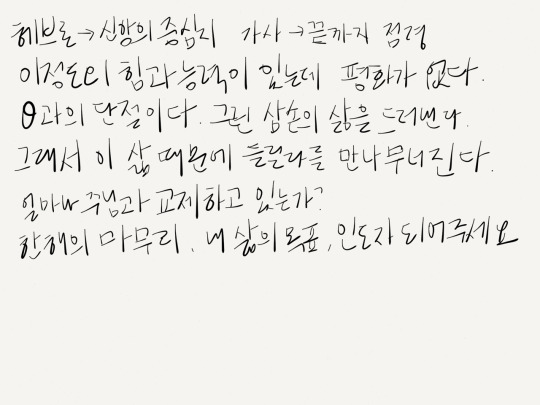 헤브론→신앙의 중심지 가사→끝까지 점령
이정도의 힘과 능력이 있는데 평화가 없다.
θ과의 단절이다. 그런 삼손의 삶을 드러낸다.
그래서 이 삶 때문에 들릴라를 만나 무너진다.
얼마나 주님과 교제하고 있는가?
한해의 마무리. 내 삶의 목표, 인도자 되어주세요